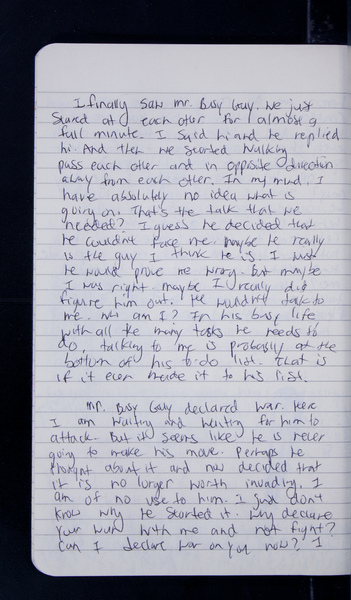 I finally saw Mr. Busy Guy. We just
stared at each other for almost a
full minute. I said hi and he replied
hi. And then we started walking
pass each other and in opposite direction
away from each other. In my mind, I
have absolutely no idea what is
going on. That's the talk that we
needed? I guess he decided that
he couldn't face me. Maybe he really
is the guy I think he is. I wish
he would prove me wrong. but maybe
I was right. maybe I really did
figure him out. He wouldn't talk to
me. Who am I? In his busy life
with all the many tasks he needs to
do, talking to me is probably at the
bottom of his to-do list. That is
if it even made it to his list.
Mr. Busy Guy declared war. Here
I am waiting and waiting for him to
attack. But it seems like he is never
going to make his move. Perhaps he
thought about it and now decided that
it is no longer worth invading. I
am of no use to him. I just don't
know why he started it. Why declare
your war with me and not fight?
Can I declare war on you now? I